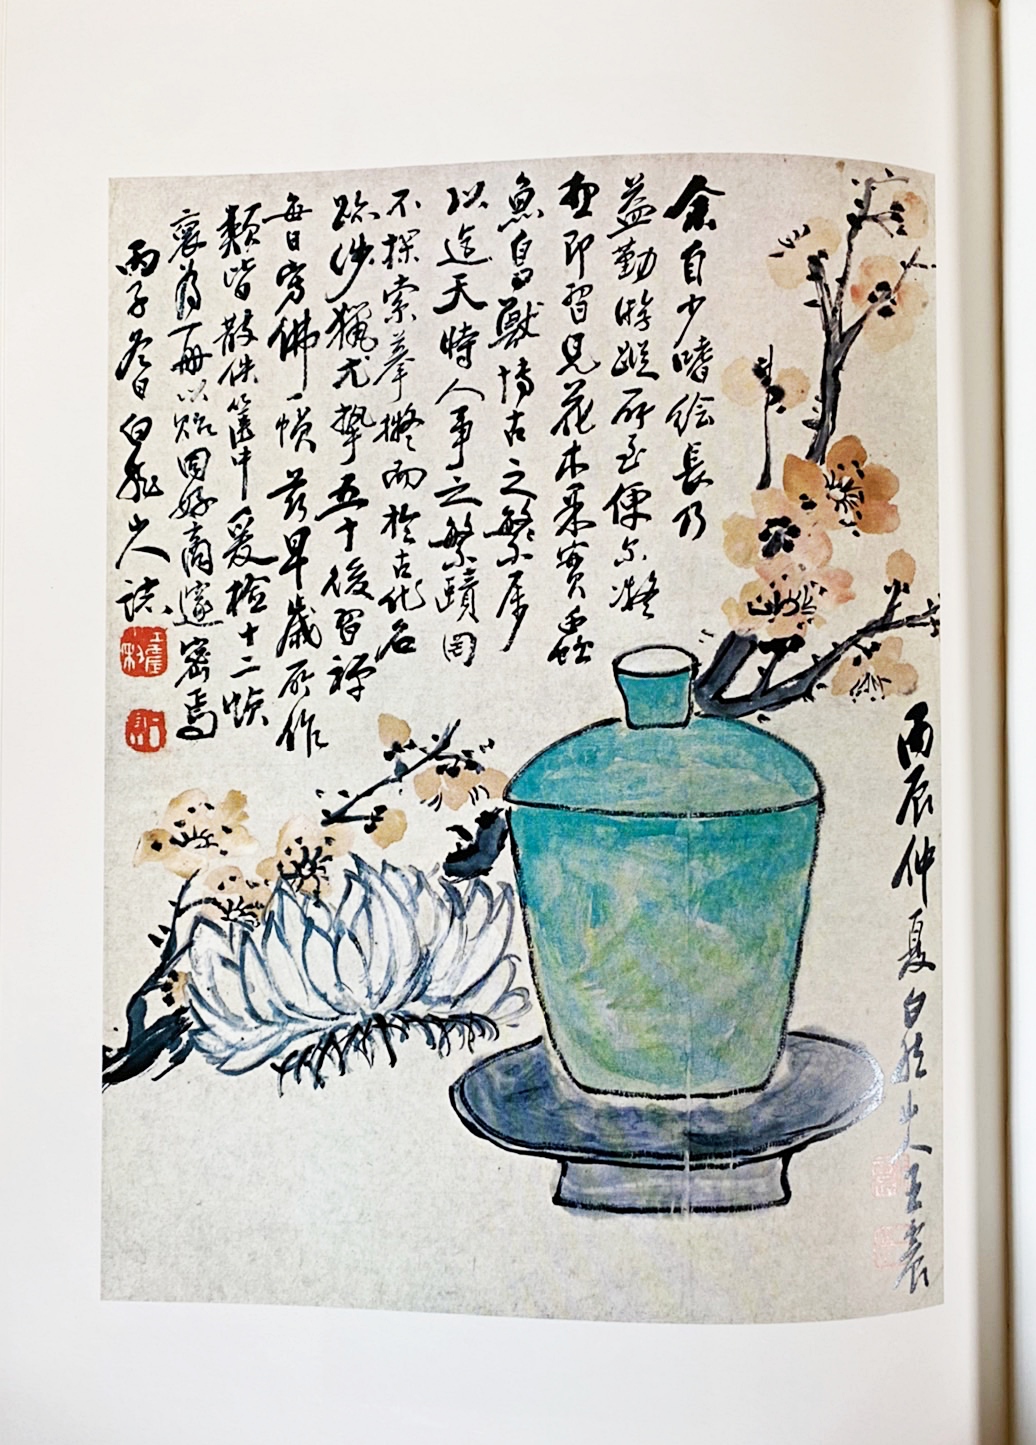 余自少嗜绘長乃
益勤游蹤所至便尔凝
想即習見花木果實蟲
魚鳥獸博古之繁屑
以迄天時人事之繁賾罔
不探索摹擬而於古代名
跡涉獵尤摯五十後習禪
每日寫佛一幀茲早歲所作
類皆散佚箧中爰檢十二幀
裒為一冊以貽同好商邃密焉
丙子冬日白龍山人誌
丙辰仲夏白龍山人王震